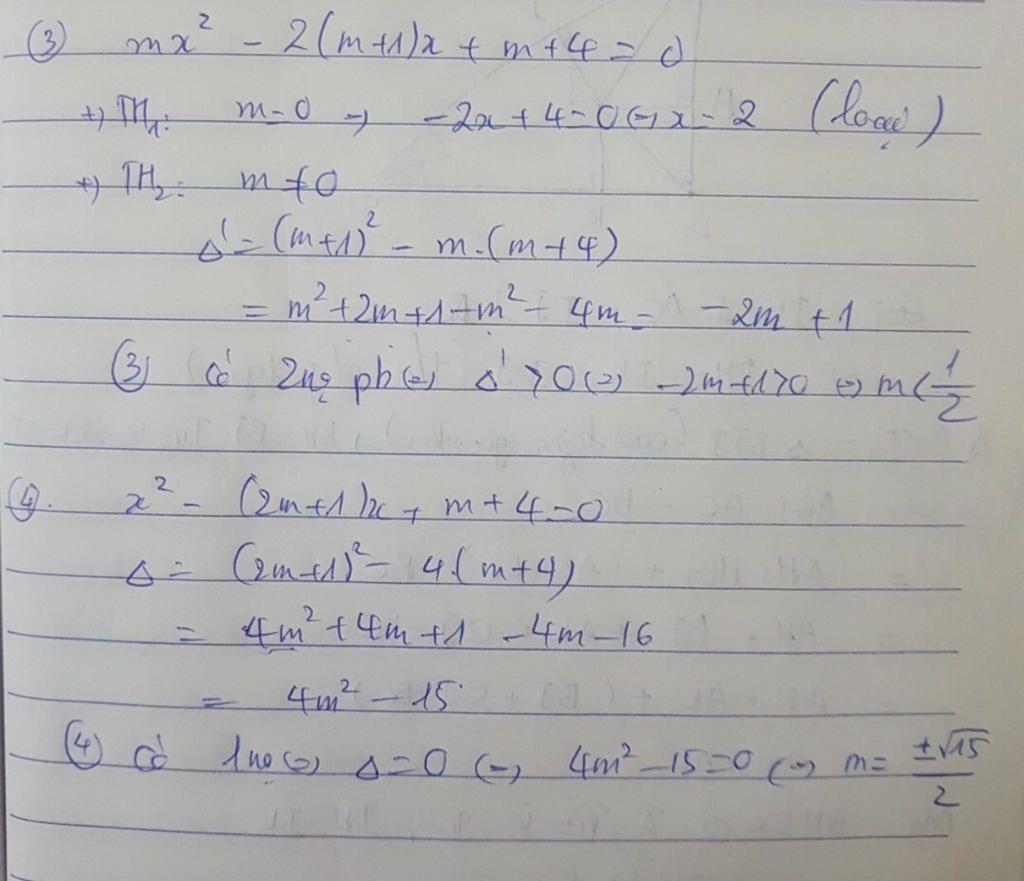 ③ mx² - 2(m+1)x + m+4 = 0
+) TH₁: m=0 → -2x+4=0 ⇔ x=2 (loại)
+) TH₂: m≠0
Δ' = (m+1)² - m.(m+4)
= m²+2m+1-m²-4m = -2m+1
③ có 2 nọ pb ⇔ Δ' > 0 ⇔ -2m+1>0 ⇔ m<1/2
④. x² - (2m+1)x + m+4=0
Δ = (2m+1)² - 4(m+4)
= 4m²+4m+1 -4m-16
= 4m²-15
④ có 1 nọ ⇔ Δ=0 ⇔ 4m²-15=0 ⇔ m= ±√15/2